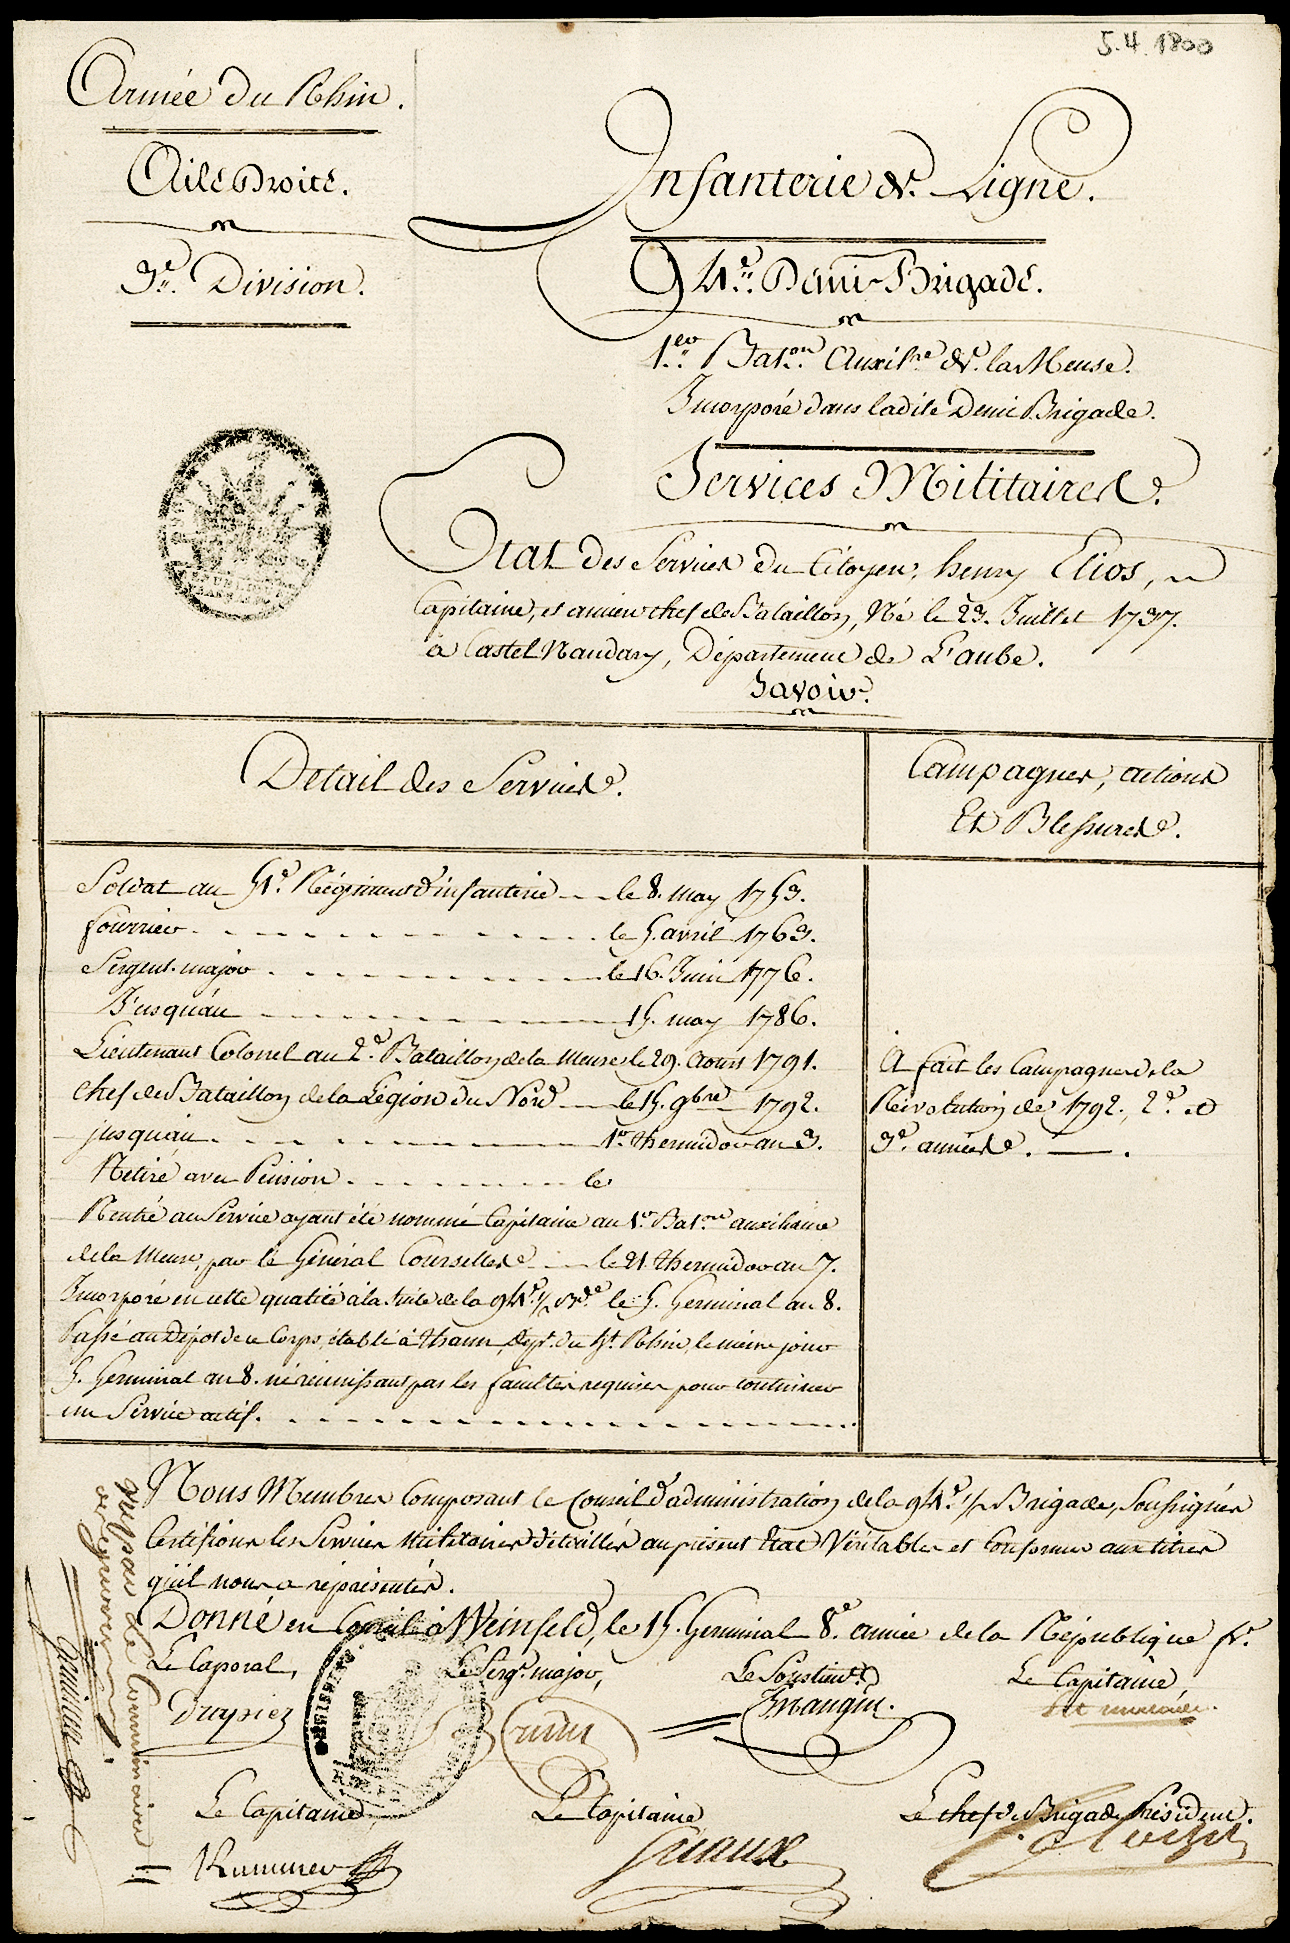 5.4.1800
Armée du Rhin.
Aile Droite.
3.e Division.
Infanterie de Ligne.
94.e Demi-Brigade.
1.er Bat.on Auxil.re de la Meuse.
Incorporé dans ladite Demi Brigade.
Services Militaires.
Etat des Services du Citoyen, henry Elios,
Capitaine, et ancien chef de Bataillon, Né le 23. Juillet 1737.
à Castel Naudary, Département de L'aube.
Savoir.
Détail des Services.
Campagnes, actions
Et Blessures.
Soldat au 51.e Régiment d'infanterie le 8. may 1753.
fourrier le 5. avril 1763.
Sergent-major le 16. Juin 1776.
Jusqu'au 15. may 1786.
Lieutenant Colonel au 2.e Bataillon de la Meuse le 29. Aoust 1791.
Chef de Bataillon de la Légion du Nord le 15. 9bre 1792.
jusqu'au 1.er thermidor an 3.
Retiré avec Pension le
Rentré au Service ayant été nommé Capitaine au 1.er Bat.on auxiliaire
de la Meuse, par le Général Courselles le 21 thermidor an 7.
Incorporé en cette qualité à la Suite de la 94.e 1/2 B.de le 5. Germinal an 8.
Passé au Dépôt de ce Corps, établi à Thann, Dep.t du h.t Rhin, le même jour
5. Germinal an 8. ne réunissant pas les facultés requises pour continuer
un Service actif.
A fait les Campagnes de la
Révolution de 1792., 2.e et
3.e années.
Nous Membres Composant le Conseil d'administration de la 94.e 1/2 Brigade, Soussignés
Certifions les Services Militaires détaillés au présent Etat Véritables et Conformes aux titres
qu'il nous a représentés.
Donné en Conseil à Weinfeld, le 15. Germinal 8.e année de la République fr.se
Le Caporal,
Le Serg.t major,
Le Souslieut.t
Le Capitaine,
Drapiez
Mangin.
Le Capitaine,
Le Capitaine
Le chef de Brigade Président.
Kummer
Giraux
vu par le Commissaire